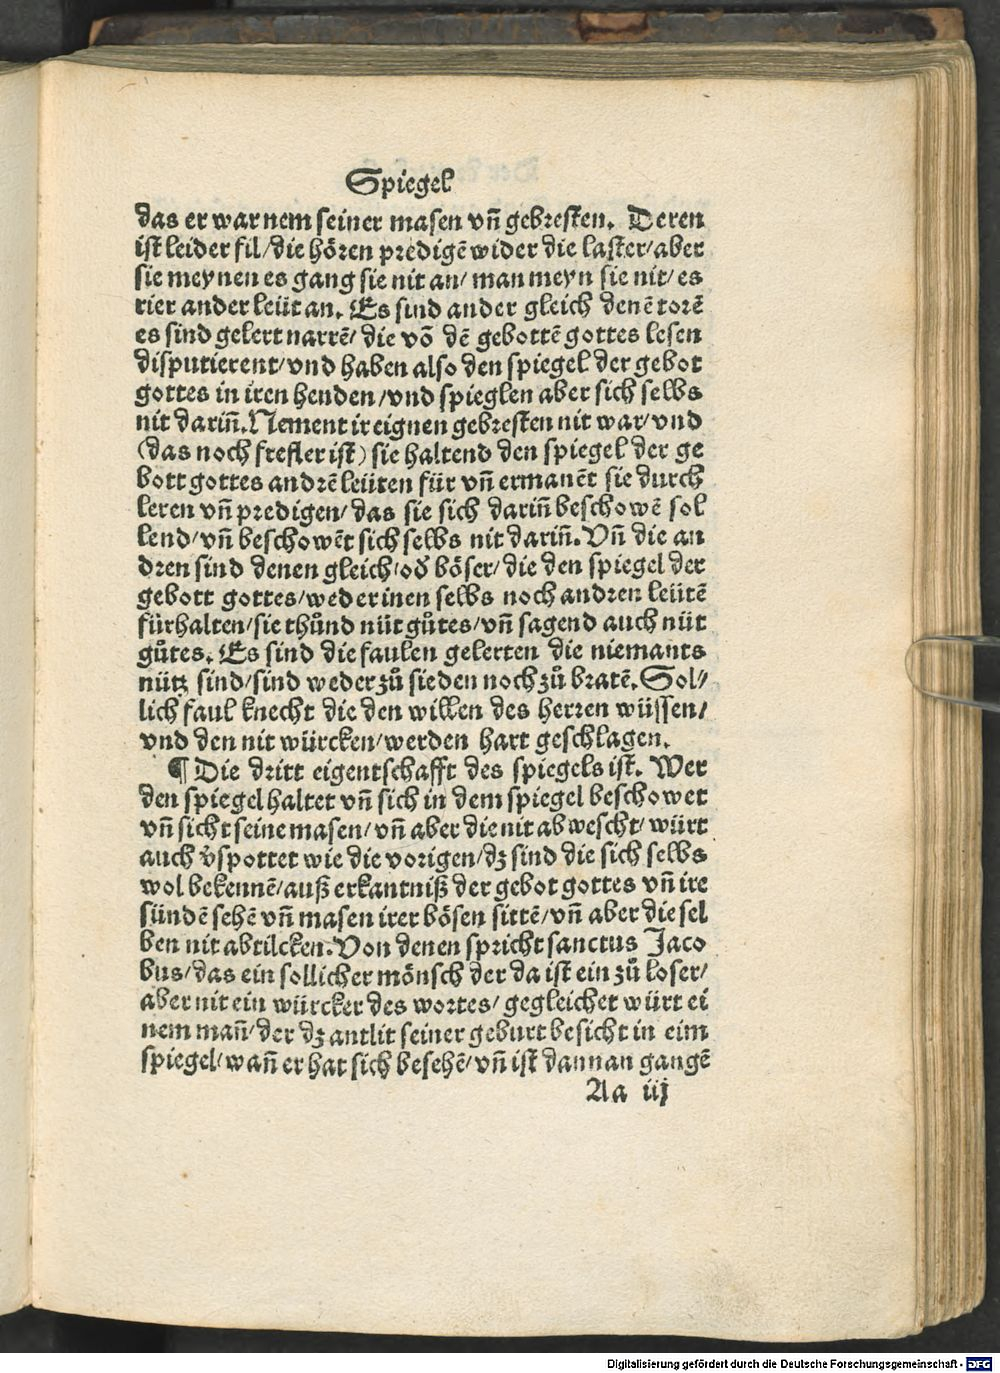 Spiegel
das er war nem seiner masen vñ gebresten. Deren
ist leider fil/die hören predigē wider die laster/aber
sie meynen es gang sie nit an/man meyn sie nit/es
rier ander leüt an. Es sind ander gleich denē torē
es sind gelert narrē/die võ dē gebottē gottes lesen
disputierent/vnd haben also den spiegel der gebot
gottes in iren henden/vnd spieglen aber sich selbs
nit dariñ. Nement ir eignen gebresten nit war/vnd
(das noch frefler ist) sie haltend den spiegel der ge
bott gottes andrē leüten für vñ ermanēt sie durch
leren vñ predigen/das sie sich dariñ beschowē sol
lend/vñ beschowēt sich selbs nit dariñ. Vñ die an
dren sind denen gleich/od̕ böser/die den spiegel der
gebott gottes/weder inen selbs noch andren leütē
fürhalten/sie thůnd nüt gůtes/vñ sagend auch nüt
gůtes. Es sind die faulen gelerten die niemants
nütz sind/sind weder zů sieden noch zů bratē. Sol⸗
lich faul knecht die den willen des herren wüssen/
vnd den nit würcken/werden hart geschlagen.
¶ Die dritt eigentschafft des spiegels ist. Wer
den spiegel haltet vñ sich in dem spiegel beschowet
vñ sicht seine masen/vñ aber die nit abwescht/würt
auch v̕spottet wie die vorigen/dz sind die sich selbs
wol bekennē/auß erkantniß der gebot gottes vñ ire
sündē sehē vñ masen irer bösen sittē/vñ aber die sel
ben nit abtilcken. Von denen spricht sanctus Jaco
bus/das ein sollicher mönsch der da ist ein zů loser/
aber nit ein würcker des wortes/gegleichet würt ei
nem mañ/der dz antlit seiner geburt besicht in eim
spiegel/wañ er hat sich besehē/vñ ist dannan gangē
Aa iij
Digitalisierung gefördert durch die Deutsche Forschungsgemeinschaft - DFG